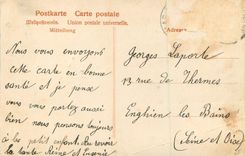 Postkarte Carte postale
Weltpostverein. Union postale universelle.
Mitteilung
Adresse
Nous vous envoyons
cette carte en bonne
santé et je pense
vous portez aussi
bien nous
le petit enfant
la tante Reine et Eugénie
Georges Laporte
13 rue de Thermes
Enghien les Bains
(Seine et Oise)